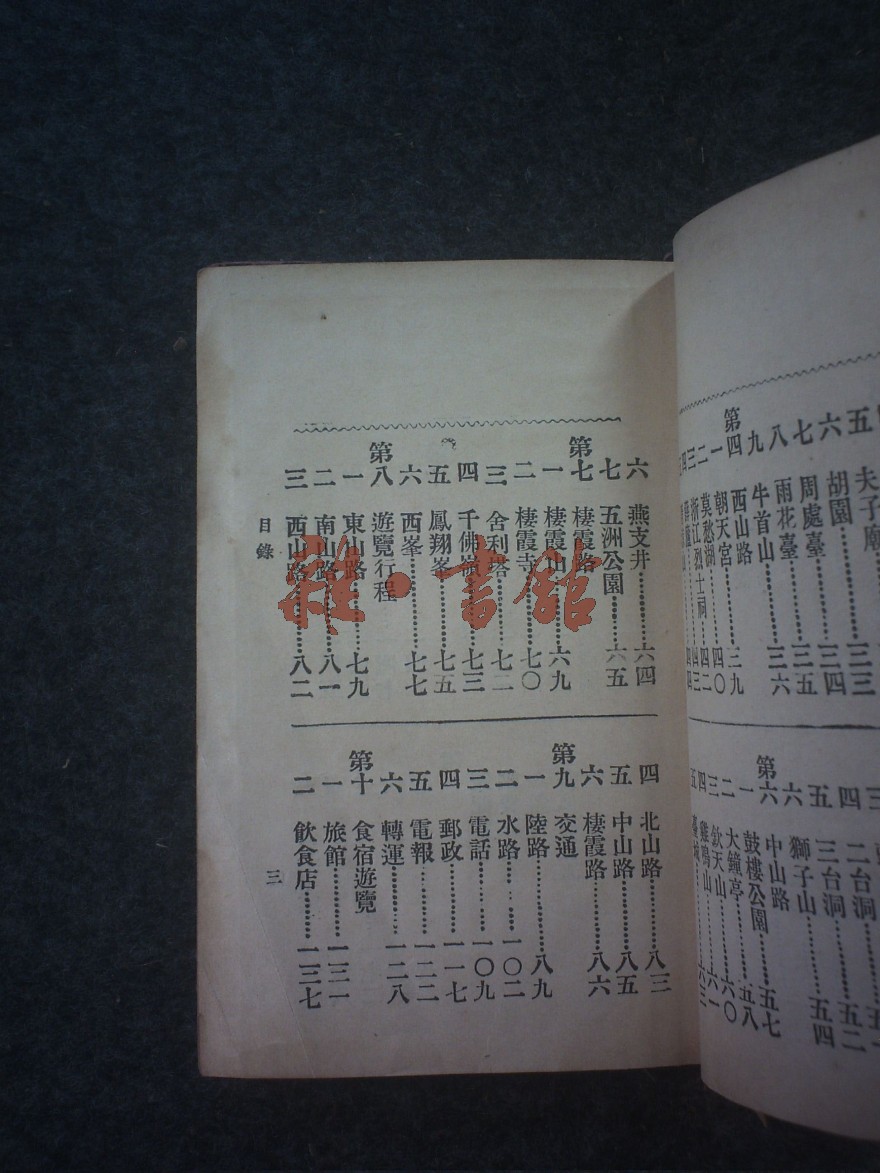 夫子廟
六 胡園……三四
七 周處臺……三五
八 雨花臺……三六
九 牛首山
第四 西山路……三九
一 朝天宮……四〇
二 莫愁湖……四二
三 浙江烈士祠……四三
四
二台洞……五二
五 三台洞……五四
六 獅子山
第六 中山路……五七
一 鼓樓公園……五八
二 大鐘亭……六〇
三 欽天山……六一
四 雞鳴山……六三
五
六 燕支井……六四
七 五洲公園……六五
第七 棲霞路
一 棲霞山……六九
二 棲霞寺……七〇
三 舍利塔……七二
四 千佛嶺……七三
五 鳳翔峯……七五
六 西峯……七七
第八 遊覽行程
一 東山路……七九
二 南山路……八一
三 西山路……八二
四 北山路……八三
五 中山路……八五
六 棲霞路……八六
第九 交通
一 陸路……八九
二 水路……一〇二
三 電話……一〇九
四 郵政……一一七
五 電報……一二二
六 轉運……一二八
第十 食宿遊覽
一 旅館……一三一
二 飲食店……一三七
目錄
三
雜·書館